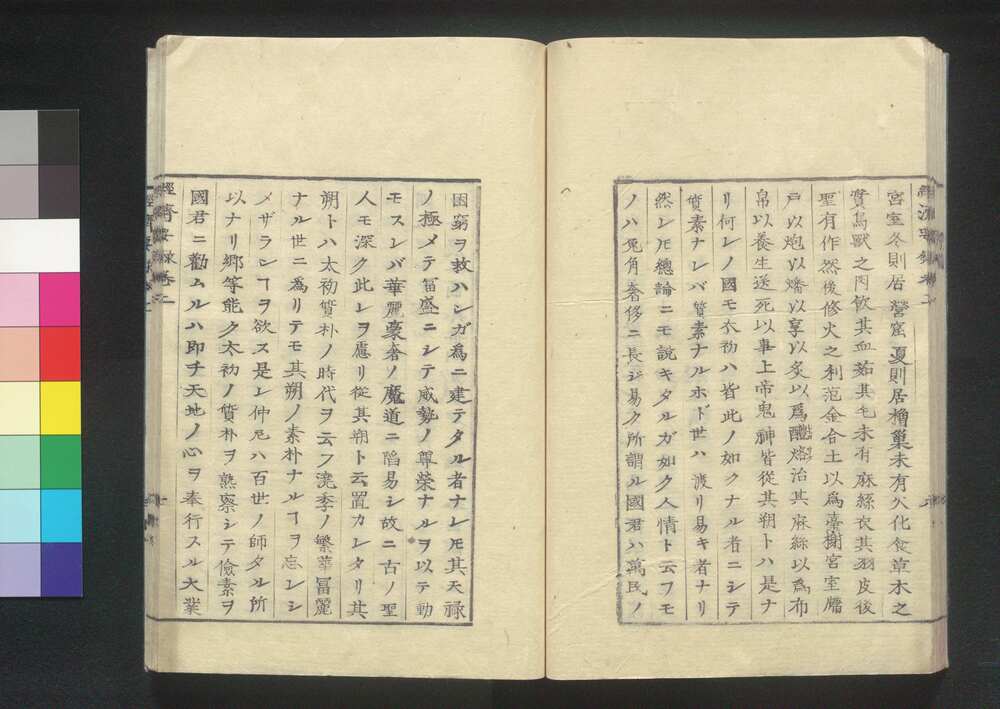 宮室冬則居營窟夏則居櫓巢未有火化食草木之
實鳥獸之肉飲其血茹其毛未有麻絲衣其羽皮後
聖有作然後修火之利范金合土以爲臺榭宮室牖
戶以炮以燔以享以炙以爲醴酪治其麻絲以爲布
帛以養生送死以事上帝鬼神皆從其朔トハ是ナ
リ何レノ國モ衣初ハ皆此ノ如クナル者ニシテ
質素ナレバ質素ナルホド世ハ渡リ易キ者ナリ
然レ𪜈總論ニモ說キタルガ如ク人情ト云フモ
ノハ兎角奢侈ニ長ジ易ク所謂ル國君ハ萬民ノ
困窮ヲ救ハンガ爲ニ建テタル者ナレ𪜈其天祿
ノ極メテ富盛ニシテ威勢ノ尊榮ナルヲ以テ動
モスレバ華麗豪奢ノ魔道ニ陷易シ故ニ古ノ聖
人モ深ク此レヲ慮リ從其朔ト云置カレタリ其
朔トハ太初質朴ノ時代ヲ云フ澆季ノ繁華冨麗
ナル世ニ爲リテモ其朔ノ素朴ナルヿヲ忘レシ
メザランヿヲ欲ス是レ仲尼ハ百世ノ師タル所
以ナリ鄉等能ク太初ノ質朴ヲ熟察シテ儉素ヲ
國君ニ勸ムルハ即チ天地ノ心ヲ奉行スル大業
經濟要錄卷二